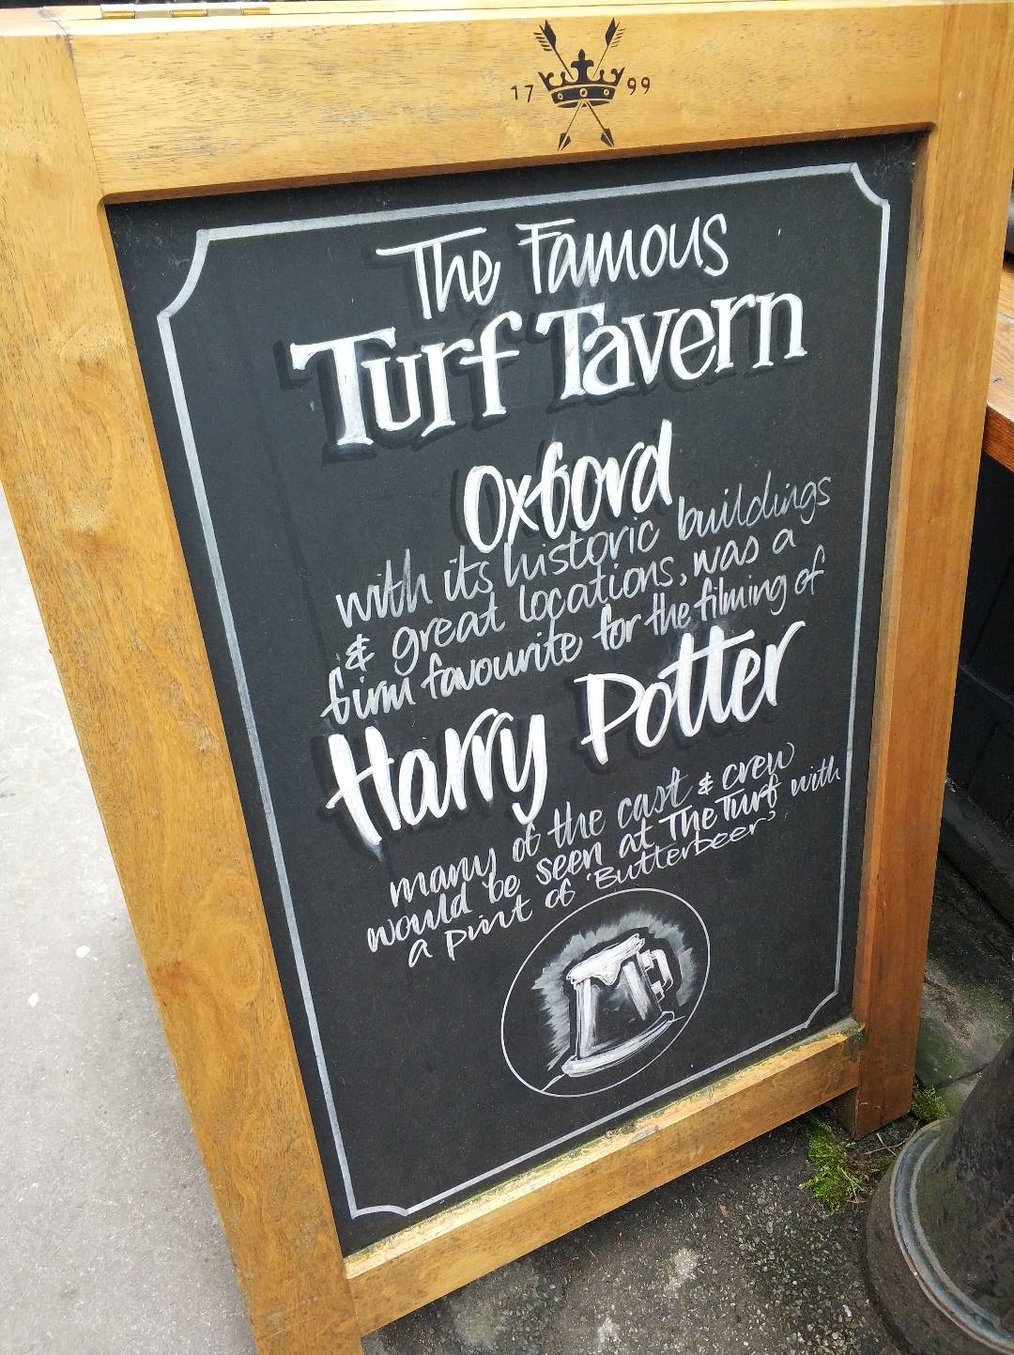 17 99
The Famous
Turf Tavern
Oxford
with its historic buildings
& great locations, was a
firm favourite for the filming of
Harry Potter
many of the cast & crew
would be seen at The Turf with
a pint of 'Butterbeer'